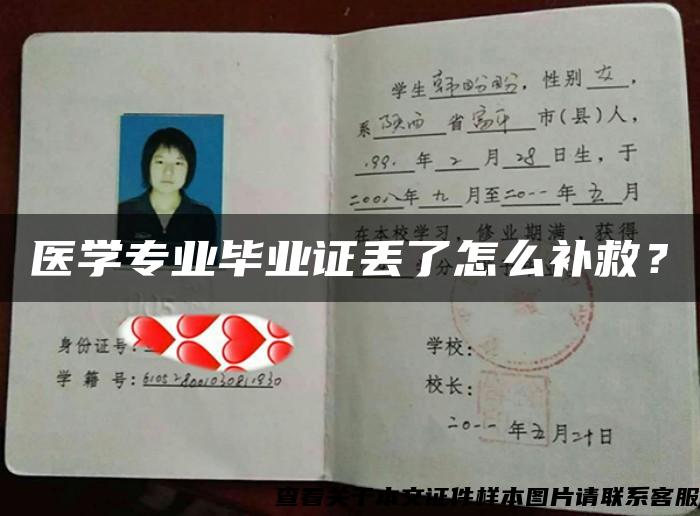 学生韩盼盼，性别女，
系陕西省富平市(县)人，
199.年2月28日生，于
二00八年九月至二0一一年五月
在本校学习，修业期满，获得
医学专业毕业证丢了怎么补救？
身份证号：
学籍号：
学校：
校长：
二0一一年五月二十日
查看关于本文证件样本图片请联系客服